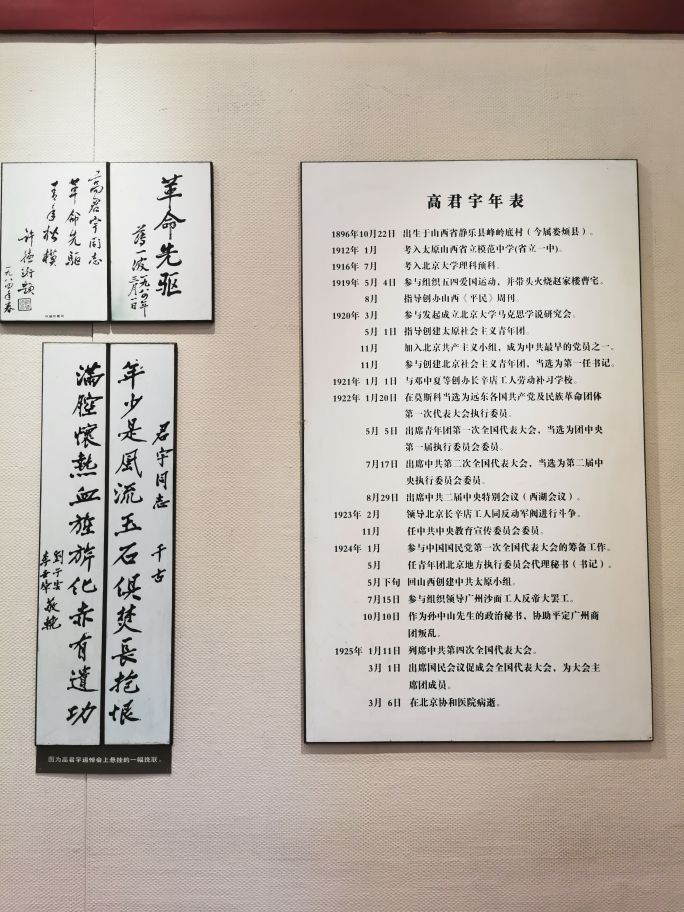 革命先驱
薄一波 一九八四年
三月一日
高君宇同志
革命先驱
青年楷模
许德珩题
一九八四年春
君宇同志 千古
年少是风流玉石俱焚长抱恨
满腔怀热血旌旂化赤有遗功
敬輓
因为高君宇追悼会上悬挂的一幅挽联。
高君宇年表
1896年10月22日 出生于山西省静乐县峰岭底村（今属娄烦县）。
1912年 1月 考入太原山西省立模范中学(省立一中)。
1916年 7月 考入北京大学理科预科。
1919年 5月 4日 参与组织五四爱国运动，并带头火烧赵家楼曹宅。
8月 指导创办山西《平民》周刊。
1920年 3月 参与发起成立北京大学马克思学说研究会。
5月 1日 指导创建太原社会主义青年团。
11月 加入北京共产主义小组，成为中共最早的党员之一。
11月 参与创建北京社会主义青年团，当选为第一任书记。
1921年 1月 1日 与邓中夏等创办长辛店工人劳动补习学校。
1922年 1月20日 在莫斯科当选为远东各国共产党及民族革命团体
第一次代表大会执行委员。
5月 5日 出席青年团第一次全国代表大会，当选为团中央
第一届执行委员会委员。
7月17日 出席中共第二次全国代表大会，当选为第二届中
央执行委员会委员。
8月29日 出席中共二届中央特别会议（西湖会议）。
1923年 2月 领导北京长辛店工人同反动军阀进行斗争。
11月 任中共中央教育宣传委员会委员。
1924年 1月 参与中国国民党第一次全国代表大会的筹备工作。
5月 任青年团北京地方执行委员会代理秘书（书记）。
5月下旬 回山西创建中共太原小组。
7月15日 参与组织领导广州沙面工人反帝大罢工。
10月10日 作为孙中山先生的政治秘书，协助平定广州商
团叛乱。
1925年 1月11日 列席中共第四次全国代表大会。
3月 1日 出席国民会议促成会全国代表大会，为大会主
席团成员。
3月 6日 在北京协和医院病逝。